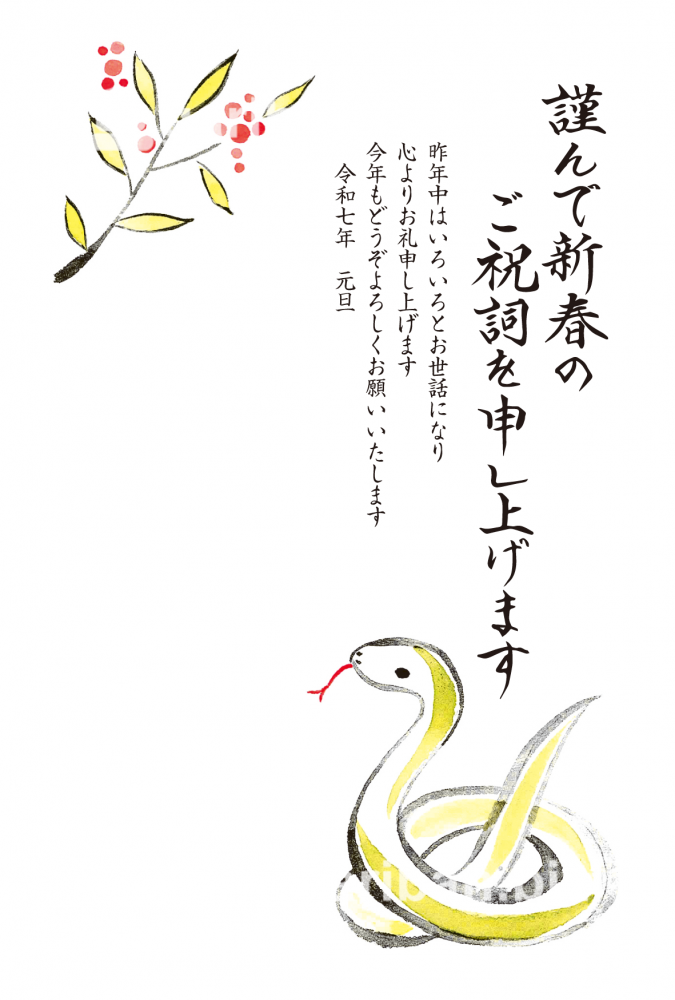 謹んで新春の
ご祝詞を申し上げます
昨年中はいろいろとお世話になり
心よりお礼申し上げます
今年もどうぞよろしくお願いいたします
令和七年　元旦